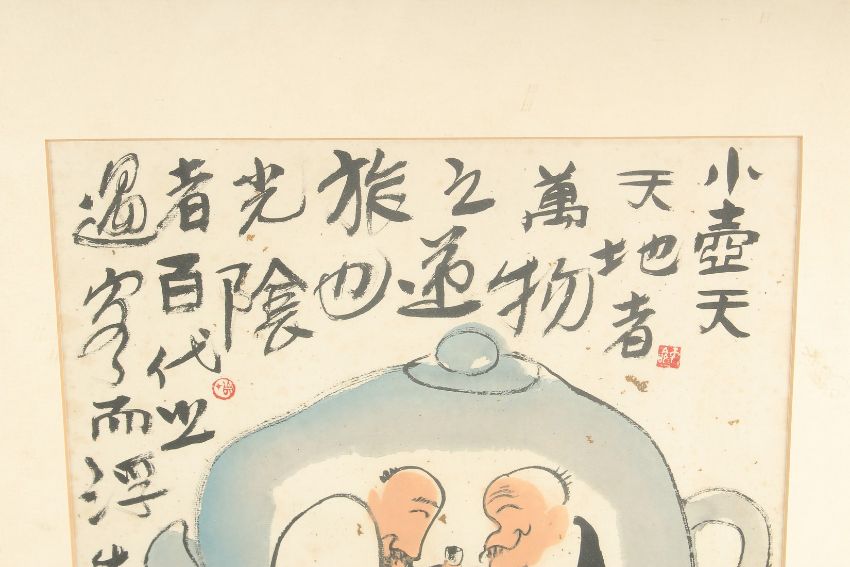 小壺天
天地者
萬物
之逆
旅也
光陰
者百代之
過客而浮